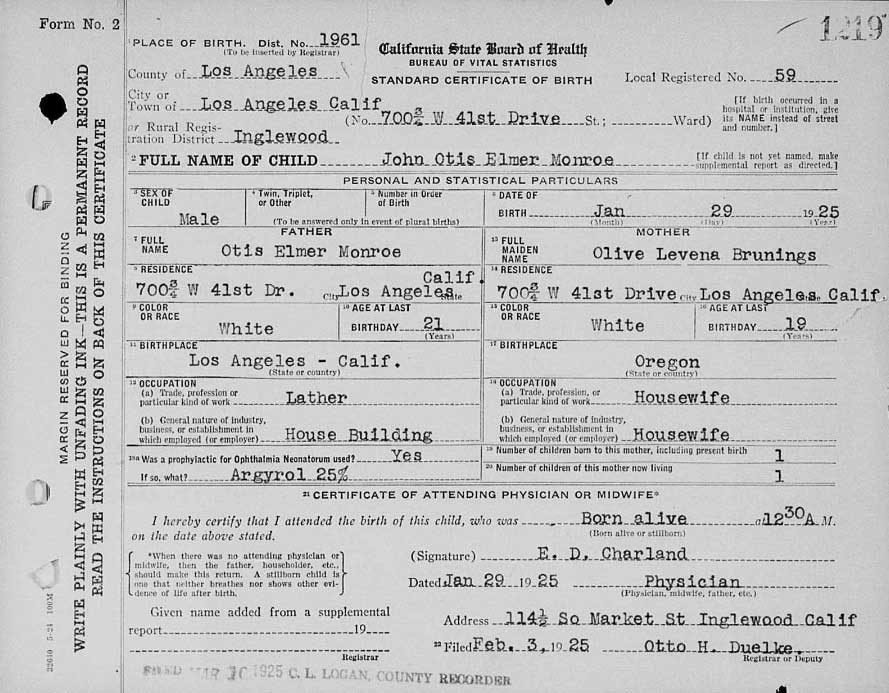 Form No. 2
1219
PLACE OF BIRTH. Dist. No. 1961
(To be inserted by Registrar)
California State Board of Health
BUREAU OF VITAL STATISTICS
STANDARD CERTIFICATE OF BIRTH
County of Los Angeles
Local Registered No. 59
City or
Town of Los Angeles Calif
(No. 700¾ W 41st Drive St.; Ward)
[If birth occurred in a
hospital or institution, give
its NAME instead of street
and number.]
or Rural Regis-
tration District Inglewood
2 FULL NAME OF CHILD John Otis Elmer Monroe
[If child is not yet named, make
supplemental report as directed.]
PERSONAL AND STATISTICAL PARTICULARS
3 SEX OF
CHILD
Male
4 Twin, Triplet,
or Other
5 Number in Order
of Birth
(To be answered only in event of plural births)
6 DATE OF
BIRTH Jan 29 1925
(Month) (Day) (Year)
FATHER
7 FULL
NAME
Otis Elmer Monroe
MOTHER
13 FULL
MAIDEN
NAME
Olive Levena Brunings
8 RESIDENCE
700¾ W 41st Dr. City Los Angeles State Calif.
14 RESIDENCE
700¾ W 41st Drive City Los Angeles State Calif.
9 COLOR
OR RACE
White
10 AGE AT LAST
BIRTHDAY 21
(Years)
15 COLOR
OR RACE
White
16 AGE AT LAST
BIRTHDAY 19
(Years)
11 BIRTHPLACE
Los Angeles - Calif.
(State or country)
17 BIRTHPLACE
Oregon
(State or country)
12 OCCUPATION
(a) Trade, profession or
particular kind of work Lather
(b) General nature of industry,
business, or establishment in
which employed (or employer) House Building
18 OCCUPATION
(a) Trade, profession, or
particular kind of work Housewife
(b) General nature of industry,
business, or establishment in
which employed (or employer) Housewife
18a Was a prophylactic for Ophthalmia Neonatorum used? Yes
If so, what? Argyrol 25%
19 Number of children born to this mother, including present birth 1
20 Number of children of this mother now living 1
21 CERTIFICATE OF ATTENDING PHYSICIAN OR MIDWIFE*
I hereby certify that I attended the birth of this child, who was Born alive at 12 30 A M.
on the date above stated.
(Born alive or stillborn)
*When there was no attending physician or
midwife, then the father, householder, etc.,
should make this return. A stillborn child is
one that neither breathes nor shows other evi-
dence of life after birth.
(Signature) E. D. Charland
Dated Jan 29 1925 Physician
(Physician, midwife, father, etc.)
Given name added from a supplemental
report 19
Registrar
Address 114½ So Market St Inglewood Calif
22 Filed Feb. 3, 1925 Otto H. Duelke.
Registrar or Deputy
FILED MAR 1925 C. L. LOGAN, COUNTY RECORDER
MARGIN RESERVED FOR BINDING
WRITE PLAINLY WITH UNFADING INK—THIS IS A PERMANENT RECORD
READ THE INSTRUCTIONS ON BACK OF THIS CERTIFICATE
32640 5-24 100M